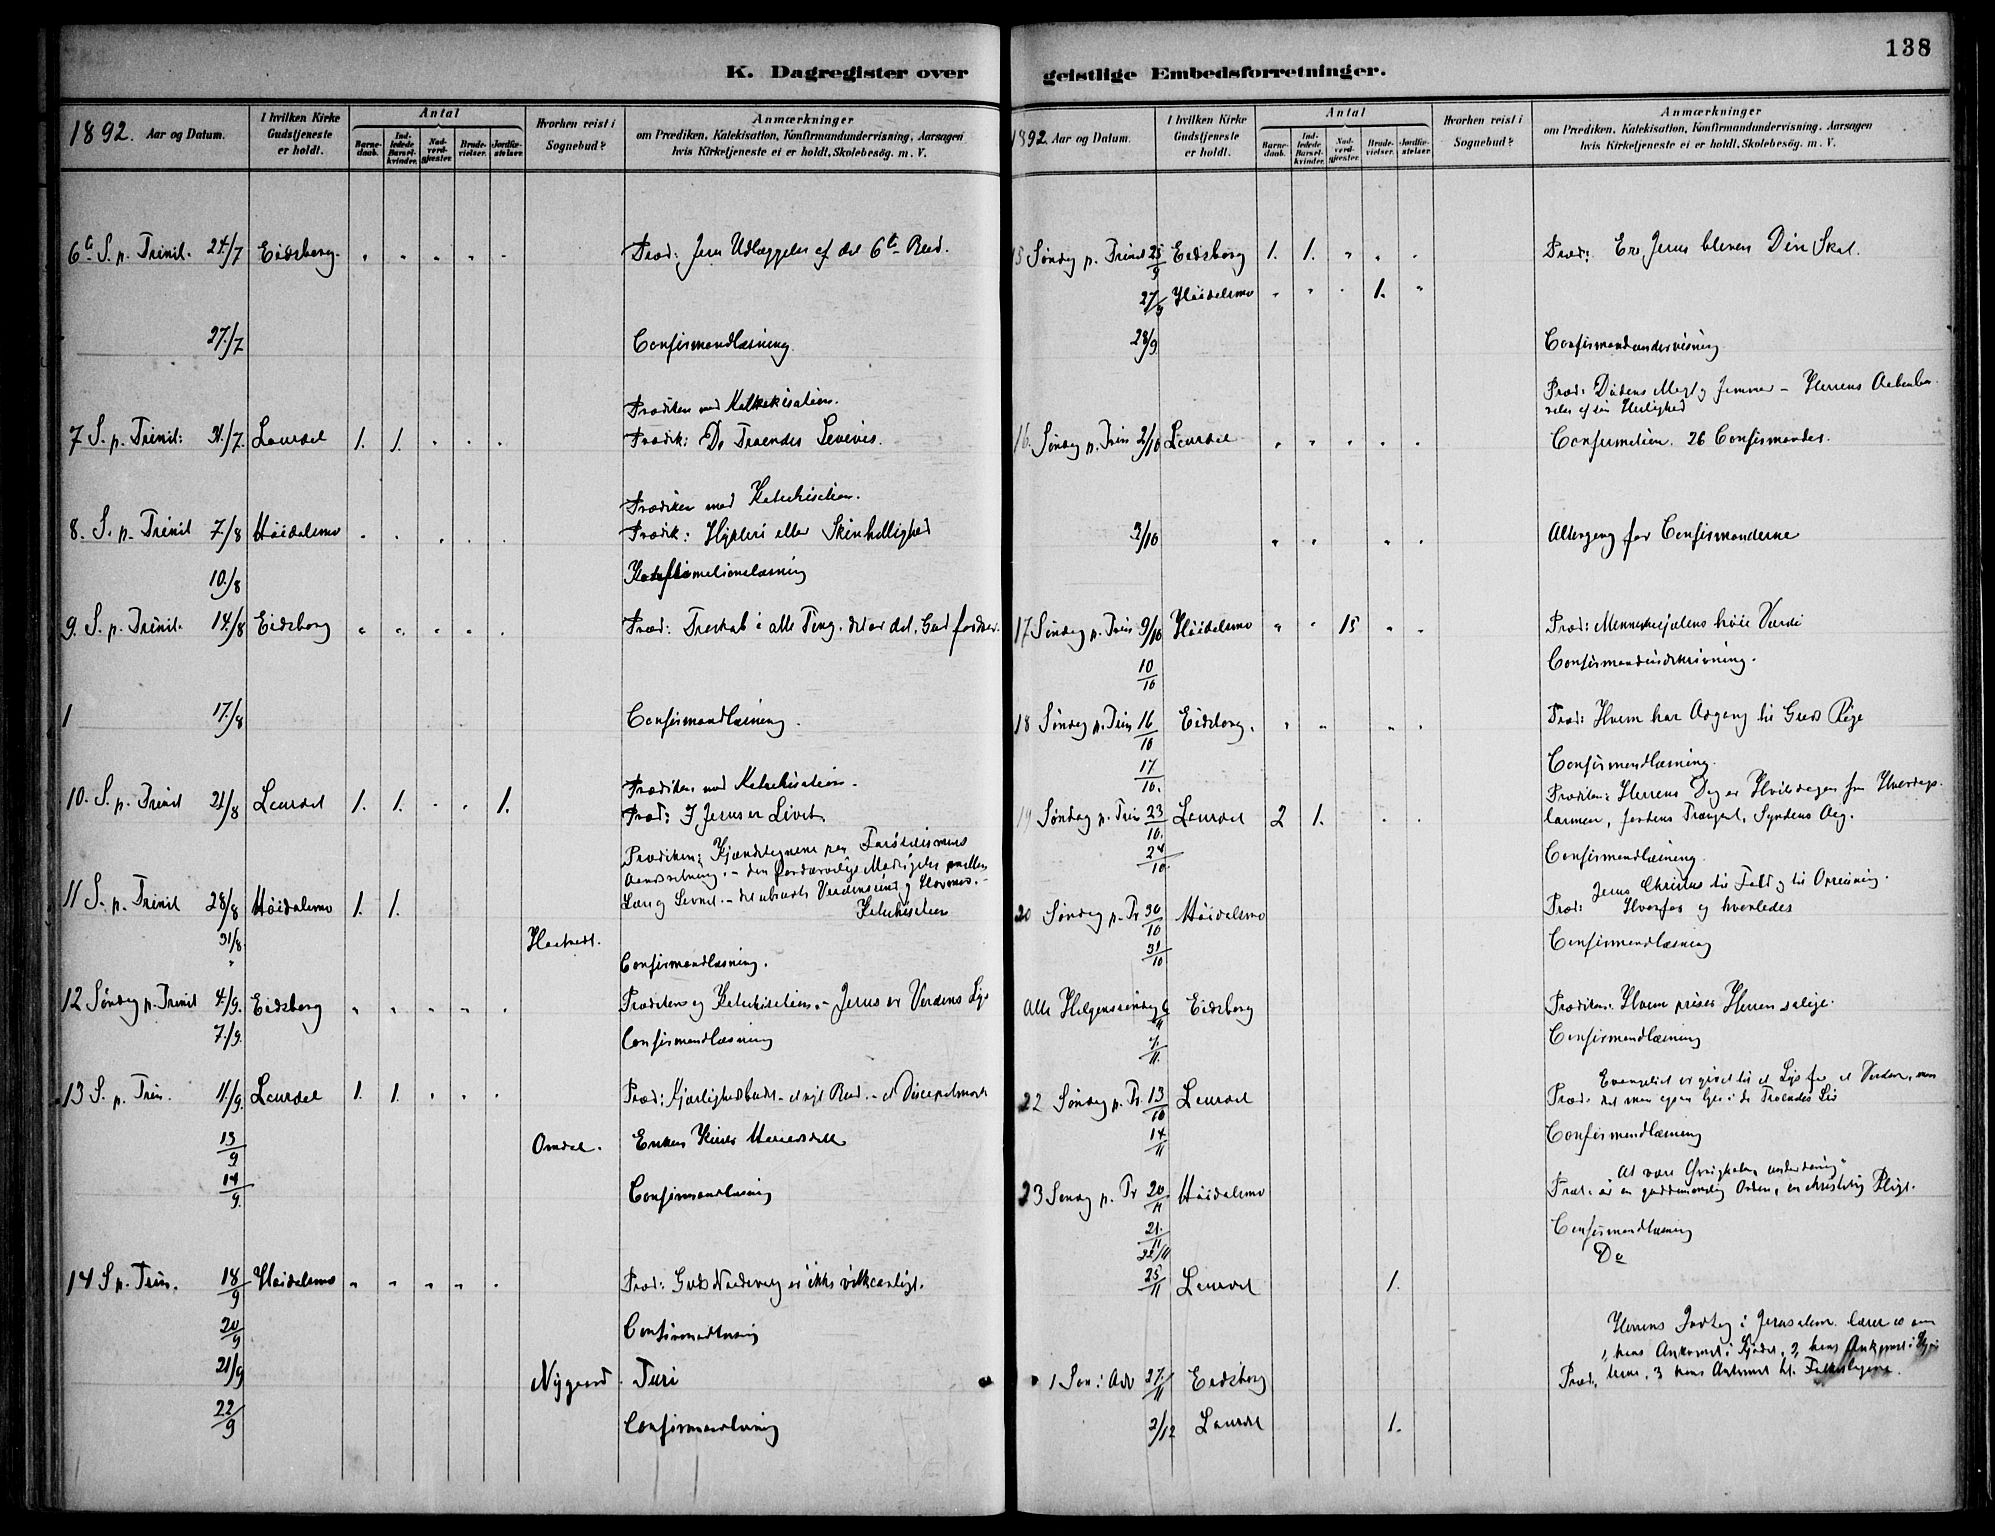 138
K. Dagregister over geistlige Embedsforretninger.
1892. Aar og Datum.
I hvilken Kirke Gudstjeneste er holdt.
Antal
Barnedaab.
Indledede Barselkvinder.
Nadverdgjester.
Brudevielser.
Jordfæstelser.
Hvorhen reist i Sognebud?
Anmærkninger
om Prædiken, Katekisation, Konfirmandundervisning, Aarsagen
hvis Kirketjeneste ei er holdt, Skolebesög. m. V.
6te S. p. Trinit. 24/7 Eidsborg. " " " " " Præd: Jesu Udlæggelse af det 6te Bud.
27./7 Confirmandlæsning.
Prædiken med Katekisation.
7 S. p. Trinit: 31./7. Laurdal 1. 1. " " " Prædik: De Troendes Levevis.
Prædiken med Katechisation.
8. S. p. Trinit 7./8 Høidalsmo " " " " " Prædik: Hykleri eller Skinhellighed
10./8
9. S. p. Trinit. 14./8 Eidsborg " " " " " Præd: Troskab i alle Ting, det er det, Gud fordrer.
1 17./8 Confirmandlæsning.
Prædiken med Katechisation.
10. S. p. Trinit 21/8 Laurdal 1. 1. " " 1. Præd: I Jesus er Livet.
Prædiken: Kjændetegnene paa Farisæismens
Aandsretning. – den fordærvelige Modsigelse mellem
11 S. p. Trinit 28/8 Høidalsmo 1. 1. Lære og Levnet. –
Katechisation
31/8.
" Confirmandlæsning.
12 Søndag p. Trinit 4./9. Eidsborg " " " " " Prædiken og Katechisation. – Jesus er Verdens Lys
7./9. Confirmandlæsning
13 S. p. Trin. 11./9. Laurdal 1. 1. " " " Præd: Kjærlighedsbudet – et nyt Bud. –
13/9 Omdal. Enken
14/9. Confirmandlæsning
14 S p. Trin. 18/9 Høidalsmo " " " " " Præd: Guds Naadevalg er ikke vilkaarligt.
20/9 Confirmandlæsning
21/9 Nygaard. Turi
22/9 Confirmandlæsning
1892 Aar og Datum.
I hvilken Kirke Gudstjeneste er holdt.
Antal
Barnedaab.
Indledede Barselkvinder.
Nadverdgjester.
Brudevielser.
Jordfæstelser.
Hvorhen reist i Sognebud?
Anmærkninger
om Prædiken, Katekisation, Konfirmandundervisning, Aarsagen
hvis Kirketjeneste ei er holdt, Skolebesög. m. V.
15 Søndag p. Trinit 25/9 Eidsborg 1. 1. " " " Præd: Er Jesus bleven Din Skat.
27/9 Høidalsmo " " " 1. "
28/9 Confirmandundervisning
Præd: Dødens Magt og Jammer – Herrens Aabenbarelse af sin Herlighed
16. Søndag p. Trin 2/10 Laurdal " " " " " Confirmation. 26 Confirmander.
3/10 " " " " Altergang for Confirmanderne
17 Søndag p. Trin 9/10 Høidalsmo " " 15 " " Præd: Menneskesjælens høie Værdi
10/10 Confirmandindskrivning.
18 Søndag p. Trin 16/10 Eidsborg. " " " " Præd: Hvem har Adgang til Guds Rige
17/10. Confirmandlæsning.
Prædiken: Herrens Dag er Hviledagen fra Hverdagslarmen,
19 Søndag p. Trin 23/10. Laurdal 2 1. " "
24/10. Confirmandlæsning.
Jesus Christus til Fald og til Opreisning.
20 Søndag p. Tr 30/10 Høidalsmo Præd: Hvorfor og hvorledes
31/10 Confirmandlæsning
Alle Helgenssøndag 6/11 Eidsborg Prædiken: Hvem priser Herren salige.
7./11. Confirmandlæsning
22 Søndag p. Tr. 13/10 Laurdal Præd.
14/11 Confirmandlæsning
At være Øvrigheden underdanig
23 Søndag p. Tr 20/11 Høidalsmo Præd. er en guddommelig Orden, en christelig Pligt.
21./11 Confirmandlæsning
22/11 Do
25/11 Laurdal 1.
Herrens Indtog i Jerusalem lærer os om
1, hans Ankomst i Kjødet, 2, hans Ankomst i
1 Søn. i Adv 27./11 Eidsborg Præd. 3 hans Ankomst til
2/12 Laurdal 1.